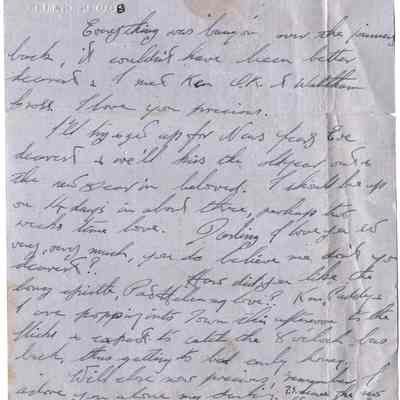 Everything was bang on over the journey
back, it couldn't have been better
dearest & I met Ken O.K. at Waltham
Cross. I love you precious.
I'll try and get up for New Years Eve
dearest & we'll kiss the old year out &
the new year in beloved. I should be up
on 14 days in about three, perhaps but
weeks time love. Darling I love you so
very, very much, you do believe me don't you
dearest? How did you like the
long epistle, love? Ken, Paddy &
I are popping into Town this afternoon to the
flicks & expect to catch the 8 o'clock bus
back, thus getting to bed early honey.
Will close now precious, remember I
adore you alone my the new